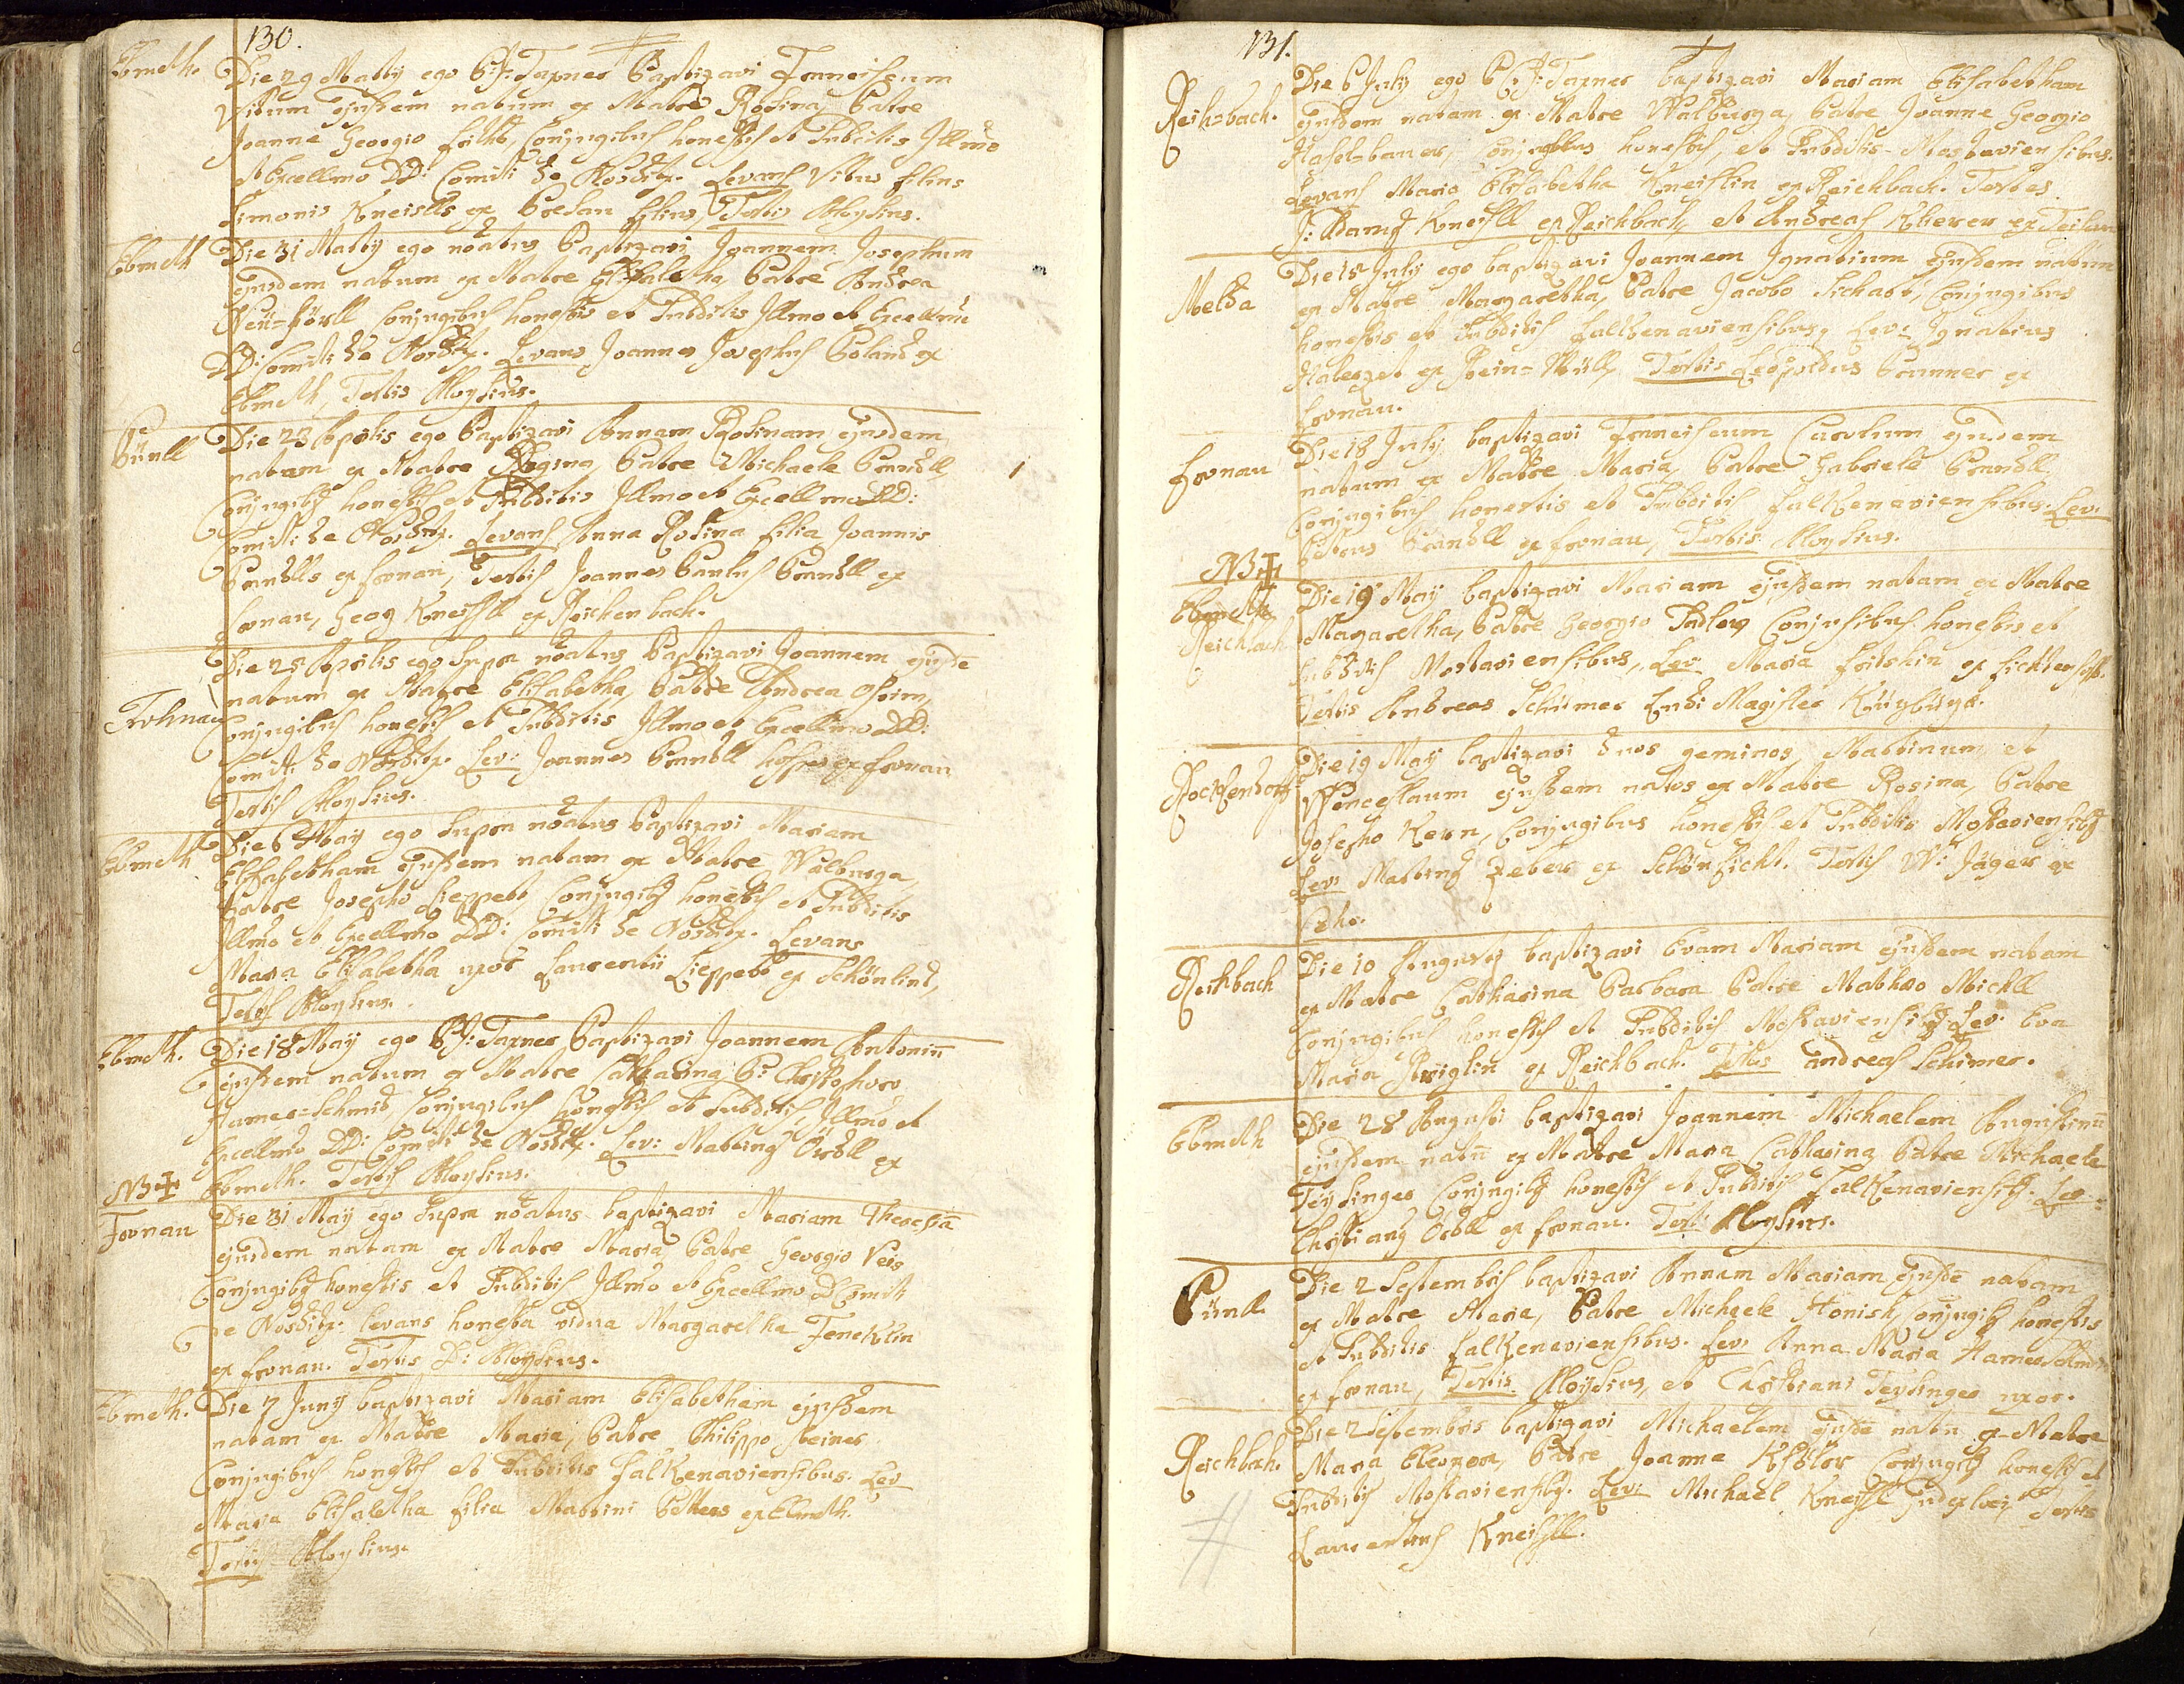 130.
Ebmeth. Die 29 Martij ego P: F: Taxner Baptizavi Franciscum
Vitum ejusdem natum ex Matre Rosina, Patre
Joanne Georgio conjugibus honestis et Subditis Illmo
et Excellmo DD: Comiti de Nostitz. Levans Vitus filius
Simonis Kneissls ex filius Testis Aloysius.
Ebmeth Die 31 Martij ego noatus Baptizavi Joannem Josephum
ejusdem natum ex Matre Elisabetha, Patre Andrea
conjugibus honestis et Subditis Illmo et Excellmo
DD: Comiti de Nostitz. Levans Joannes Josephus Poland ex
Ebmeth, Testis Aloysius.
Pünll Die 23 Aprilis ego Baptizavi Annam Rosinam ejusdem
natam ex Matre Regina, Patre Michaele Brandll,
Conjugibg honestis et Subditis Illmo et Excellmo DD:
Comiti de Nostitz. Levans Anna Rosina filia Joannis
Brandlls ex fronau, Testis Joannes Paulus Brandll ex
fronau, Georg Kneissll ex Reichenbach.
Frohnau Die 25 Aprilis ego Supra noatus Baptizavi Joannem ejusde
natum ex Matre Elisabetha, Patre Andrea
Conjugibus honestis et Subditis Illmo et Excellmo DD:
Comiti de Nostitz. Lev: Joannes Brandll ex fronau
Testis Aloysius.
Ebmeth Die 6 May ego Supra noatus Baptizavi Mariam
Elisabetham ejusdem natam ex Matre Walburga,
Patre Josepho Lieppelt Conjugibg honestis et Subditis
Illmo et Excellmo DD: Comiti de Nostitz. Levans
Maria Elisabetha uxor Laurentii Lieppelt ex Schönlind,
Testis Aloysius.
Ebmeth. Die 18 May ego P: F: Taxner Baptizavi Joannem Antoniu
ejusdem natum ex Matre Catharina, P: Christophoro
Hamer=Schmid, Conjugibus honestis et Subditis Illmo et
Excellmo DD: Comiti de Nostitz. Lev: Mathing Ördll ex
NB Ebmeth. Testis Aloysius.
Fronau Die 31 May ego Supra noatus baptizavi Mariam Theresia
ejusdem natam ex Matre Maria, Patre Georgio Veis
Conjugibg honestis et Subditis Illmo et Excellmo D Comiti
de Nostitz. Levans honesta vidua Margaretha Fencklin
ex fronau. Testis D: Aloysius.
Ebmeth. Die 7 Junij baptizavi Mariam Elisabetham ejusdem
natam ex Matre Maria, Patre Philippo Steiner
Conjugibus honestis et Subditis falkenaviensibus. Lev
Maria Elisabetha filia Martini ex Ebmeth.
Testis Aloysius.
131.
Reichbach. Die 6 July ego P: F: Taxner baptizavi Mariam Elisabetham
ejusdem natam ex Matre Walburga, Patre Joanne Georgio
Haselbauer, Conjugibus honestis, et Subditis Mostaviensibus.
Levans Maria Elisabetha Kneislin ex Reichbach. Testes
J: Adamg Kneissll ex Reichbach, et Andreas ex
Melda Die 15 July ego baptizavi Joannem Ignatium ejusdem natum
ex Matre Margaretha, Patre Jacobo Sichart, Conjugibus
honestis et Subditis falkenaviensibus, Lev: Ignatius
ex Stein=Müll, Testis Leopoldus Brunner ex
fronau.
fronau Die 18 July baptizavi Franciscum Carolum ejusdem
natum ex Matre Maria, Patre Gabriele Brandll
Conjugibus honestis et Subditis falkenaviensibus. Lev:
Brandll ex fronau, Testis Aloysius.
NB
Ebmeth Die 19 May baptizavi Mariam ejusdem natam ex Matre
Reichbach Margaretha, Patre Georgio Sadler Conjugibus honestis et
Subditis Mostaviensibus, Lev: Maria fritshin ex
Testis Andreas Schimer Ludi Magister
Rockendorff Die 19 May baptizavi duos geminos, Martinum et
Wenceslaum ejusdem natos ex Matre Rosina, Patre
Josepho Kern, Conjugibus honestis et Subditis Mostaviensibg
Lev: Marting Zeber ex Schönficht. Testis W: Jäger ex

Reichbach Die 10 Augusti baptizavi Evam Mariam ejusdem natam
ex Matre Catharina Barbara Patre Mathæo Michll
Conjugibus honestis et Subditis Mostaviensibg Lev: Eva
Maria ex Reichbach. Testis andreas Schimer.
Ebmeth Die 28 Augusti baptizavi Joannem Michaelem Augustinu
ejusdem natu ex Matre Maria Catharina, Patre Michaele
Teysinger Conjugibg honestis et Subditis Falkenaviensibg. Lev=
Christiang Ördll ex fronau. Testi Aloysius.
Pünll. Die 2 Septembris baptizavi Annam Mariam ejusde natam
ex Matre Maria, Patre Michaele Honish, Conjugibg honestis
et Subditis falkenaviensibus. Lev: Anna Maria Hamerschmid
ex fronau, Testis Aloÿsius, et Christiani Teysinger uxor.
Reichbach. Die 2 Septembris baptizavi Michaelem ejusde natu ex Matre
Maria Eleonora, Patre Joanne Conjugibg honestis et
Subditis Mostaviensibg. Lev: Michael Kneissll Judex loci Testis
Laurentius Kneissll.